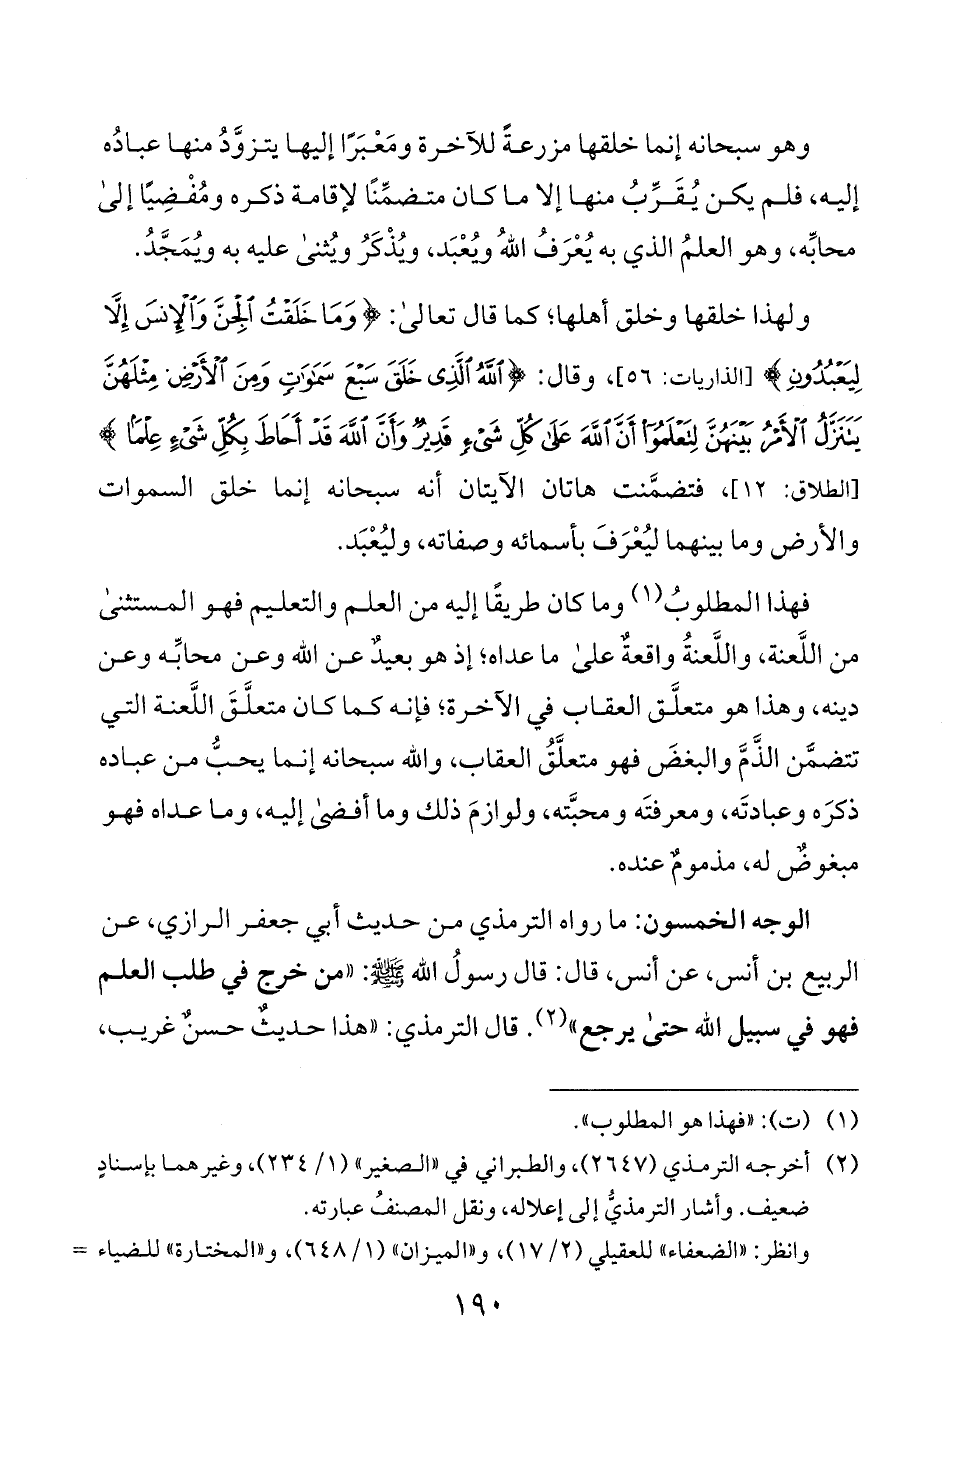 وهو سبحانه إنما خلقها مزرعةً للآخرة ومَعْبَرًا إليها يتزوَّدُ منها عبادُه
إليه، فلم يكن يُقَرِّبُ منها إلا ما كان متضمِّنًا لإقامة ذكره ومُفْضِيًا إلىٰ
محابِّه، وهو العلمُ الذي به يُعْرَفُ اللهُ ويُعْبَد، ويُذْكَرُ ويُثنىٰ عليه به ويُمَجَّدُ.
ولهذا خلقها وخلق أهلها؛ كما قال تعالىٰ: ﴿وَمَا خَلَقْتُ ٱلْجِنَّ وَٱلْإِنسَ إِلَّا
لِيَعْبُدُونِ﴾ [الذاريات: ٥٦]، وقال: ﴿ٱللَّهُ ٱلَّذِى خَلَقَ سَبْعَ سَمَٰوَٰتٍ وَمِنَ ٱلْأَرْضِ مِثْلَهُنَّ
يَتَنَزَّلُ ٱلْأَمْرُ بَيْنَهُنَّ لِتَعْلَمُوٓا۟ أَنَّ ٱللَّهَ عَلَىٰ كُلِّ شَىْءٍ قَدِيرٌ وَأَنَّ ٱللَّهَ قَدْ أَحَاطَ بِكُلِّ شَىْءٍ عِلْمًۢا﴾
[الطلاق: ١٢]، فتضمَّنت هاتان الآيتان أنه سبحانه إنما خلق السموات
والأرض وما بينهما ليُعْرَفَ بأسمائه وصفاته، وليُعْبَد.
فهذا المطلوبُ(١) وما كان طريقًا إليه من العلم والتعليم فهو المستثنىٰ
من اللَّعنة، واللَّعنةُ واقعةٌ علىٰ ما عداه؛ إذ هو بعيدٌ عن الله وعن محابِّه وعن
دينه، وهذا هو متعلَّق العقاب في الآخرة؛ فإنه كما كان متعلَّقَ اللَّعنة التي
تتضمَّن الذَّمَّ والبغضَ فهو متعلَّقُ العقاب، والله سبحانه إنما يحبُّ من عباده
ذكرَه وعبادتَه، ومعرفتَه ومحبَّته، ولوازمَ ذلك وما أفضىٰ إليه، وما عداه فهو
مبغوضٌ له، مذمومٌ عنده.
الوجه الخمسون: ما رواه الترمذي من حديث أبي جعفر الرازي، عن
الربيع بن أنس، عن أنس، قال: قال رسولُ الله ﷺ: «من خرج في طلب العلم
فهو في سبيل الله حتىٰ يرجع»(٢). قال الترمذي: «هذا حديثٌ حسنٌ غريب،
(١) (ت): «فهذا هو المطلوب».
(٢) أخرجه الترمذي (٢٦٤٧)، والطبراني في «الصغير» (١/ ٢٣٤)، وغيرهما بإسنادٍ
ضعيف. وأشار الترمذيُّ إلى إعلاله، ونقل المصنفُ عبارته.
وانظر: «الضعفاء» للعقيلي (٢/ ١٧)، و«الميزان» (١/ ٦٤٨)، و«المختارة» للضياء =
١٩٠